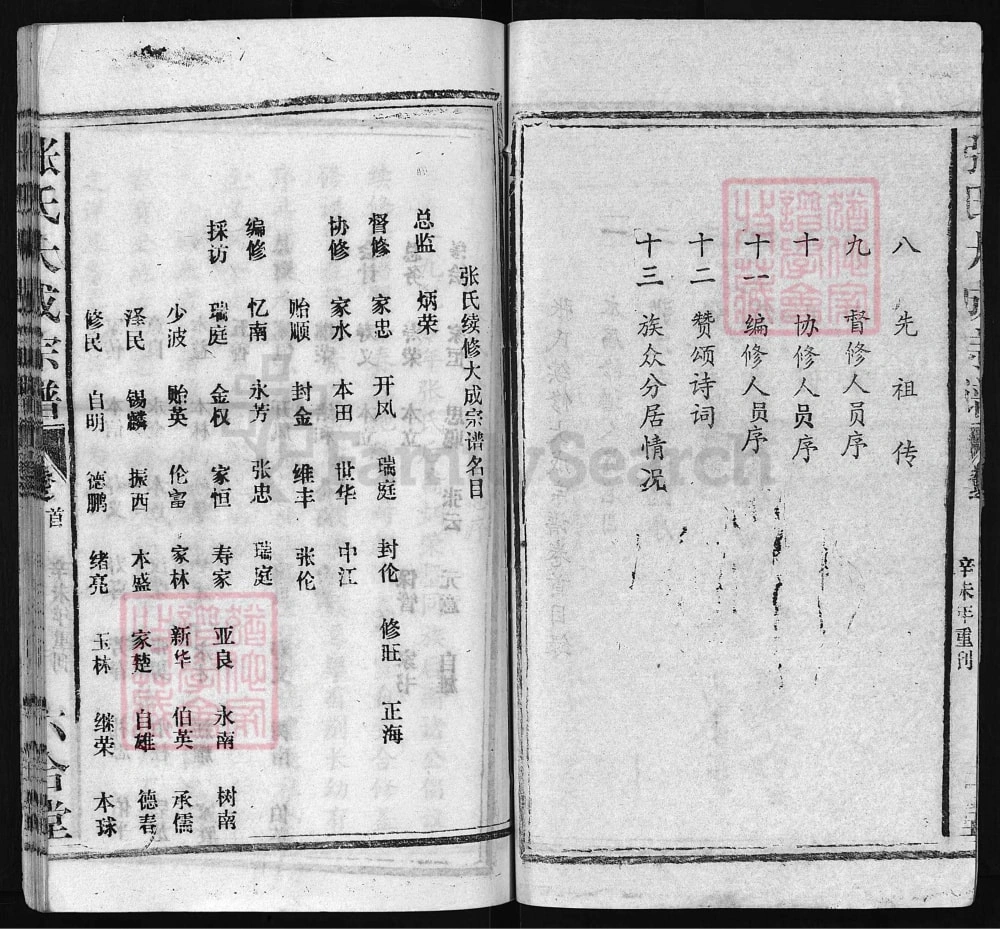 八 先祖传
九 督修人员序
十 协修人员序
十一 编修人员序
十二 赞颂诗词
十三 族众分居情况
辛未年重刊
张氏续修大成宗谱名目
总监 炳荣
督修 家忠 开凤 瑞庭 封伦 修旺 正海
协修 家水 本田 世华 中江
贻顺 封金 维丰 张伦
编修 忆南 永芳 张忠 瑞庭
採访 瑞庭 金权 家恒 寿家 亚良 永南 树南
少波 贻英 伦富 家林 新华 伯英 承儒
泽民 锡麟 振西 本盛 家楚 自雄 德春
修民 自明 德鹏 绪亮 玉林 继荣 本球
张氏大成宗谱 卷之首 六合堂
FamilySearch